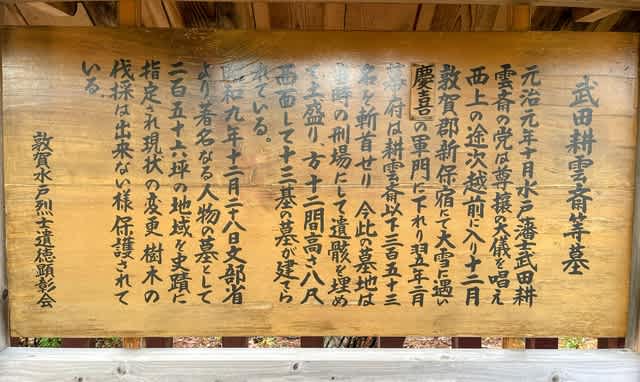 武田耕雲斎等墓
元治元年十月水戸藩士武田耕
雲斎の党は尊攘の大儀を唱え
西上の途次越前に入り十二月
敦賀郡新保宿にて大雪に遇い
慶喜の軍門に下れり翌五年二月
幕府は耕雲斎以下三百五十三
名を斬首せり 今此の墓地は
当時の刑場にして遺骸を埋め
て土盛り、方十二間高さ八尺
西面して十三基の墓が建てら
れている。
昭和九年十二月二十八日文部省
より著名なる人物の墓として
二百五十六坪の地域を史蹟に
指定され現状の変更、樹木の
伐採は出来ない様保護されて
いる
敦賀水戸烈士遺徳顕彰会